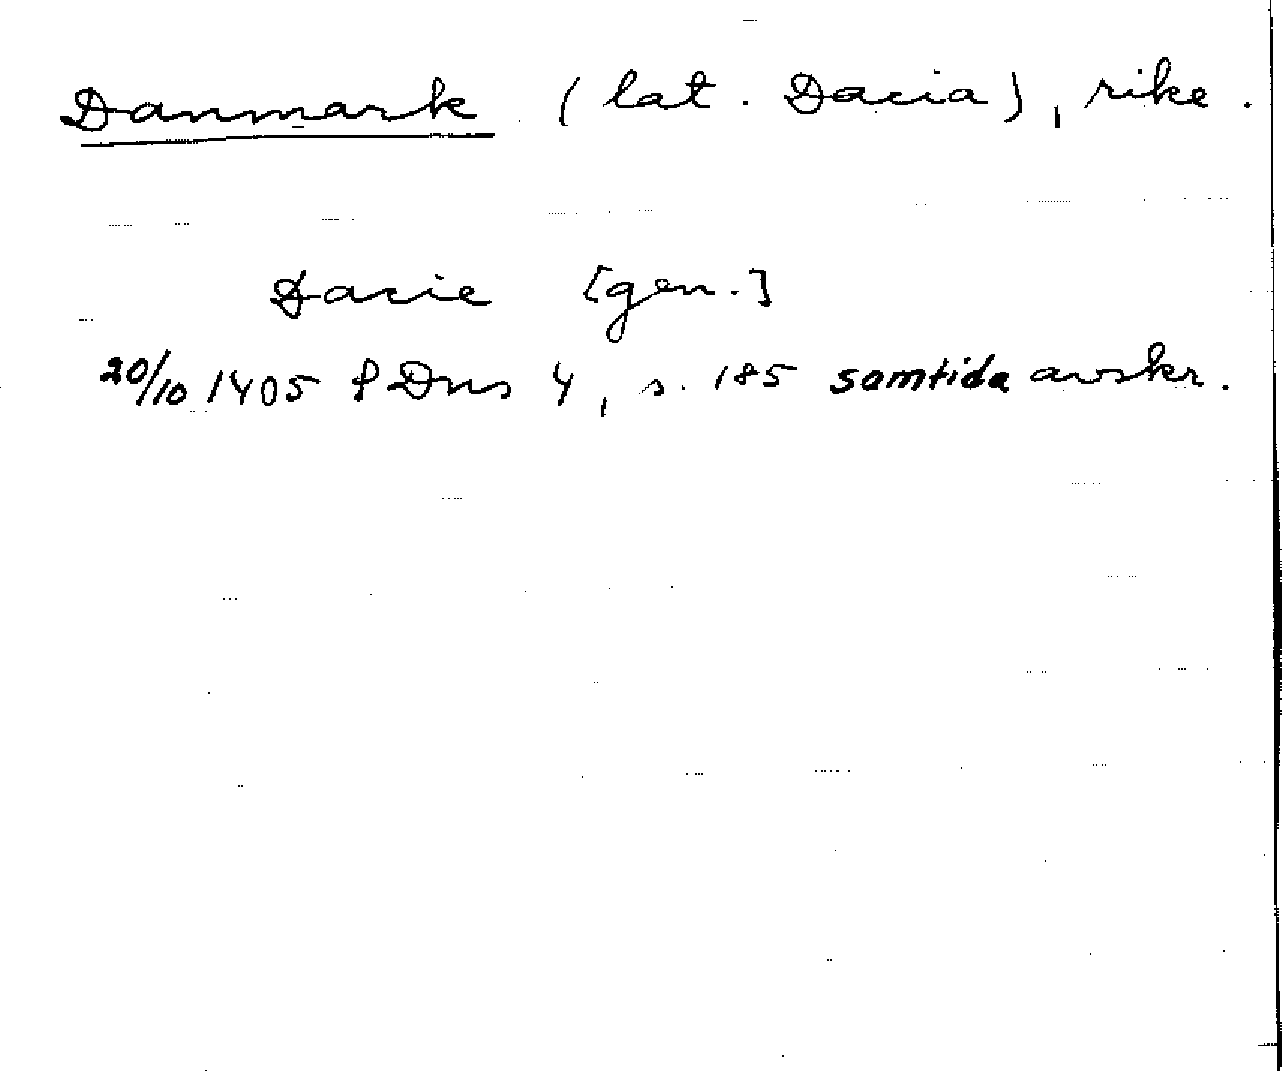 Danmark (lat. Dacia), rike.
Dacie [gen.]
20/10 1405 P Dns 4, s. 185 samtida avskr.